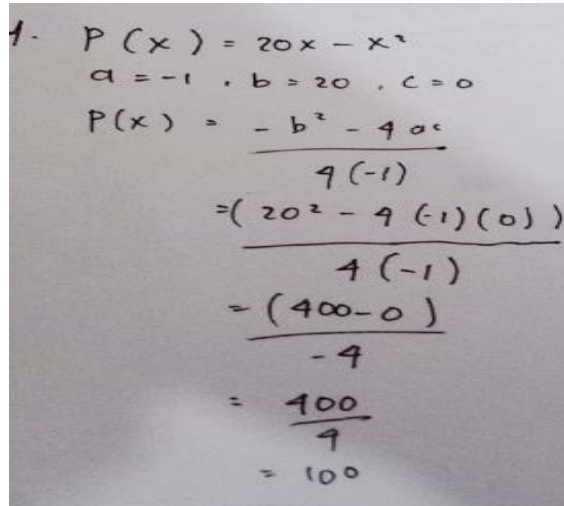 1. P(x) = 20x - x²
a = -1 . b = 20 . c = 0
P(x) = - b² - 4 ac
4 (-1)
=( 20² - 4 (-1) (0) )
4 (-1)
= (400-0)
-4
= 400
4
= 100